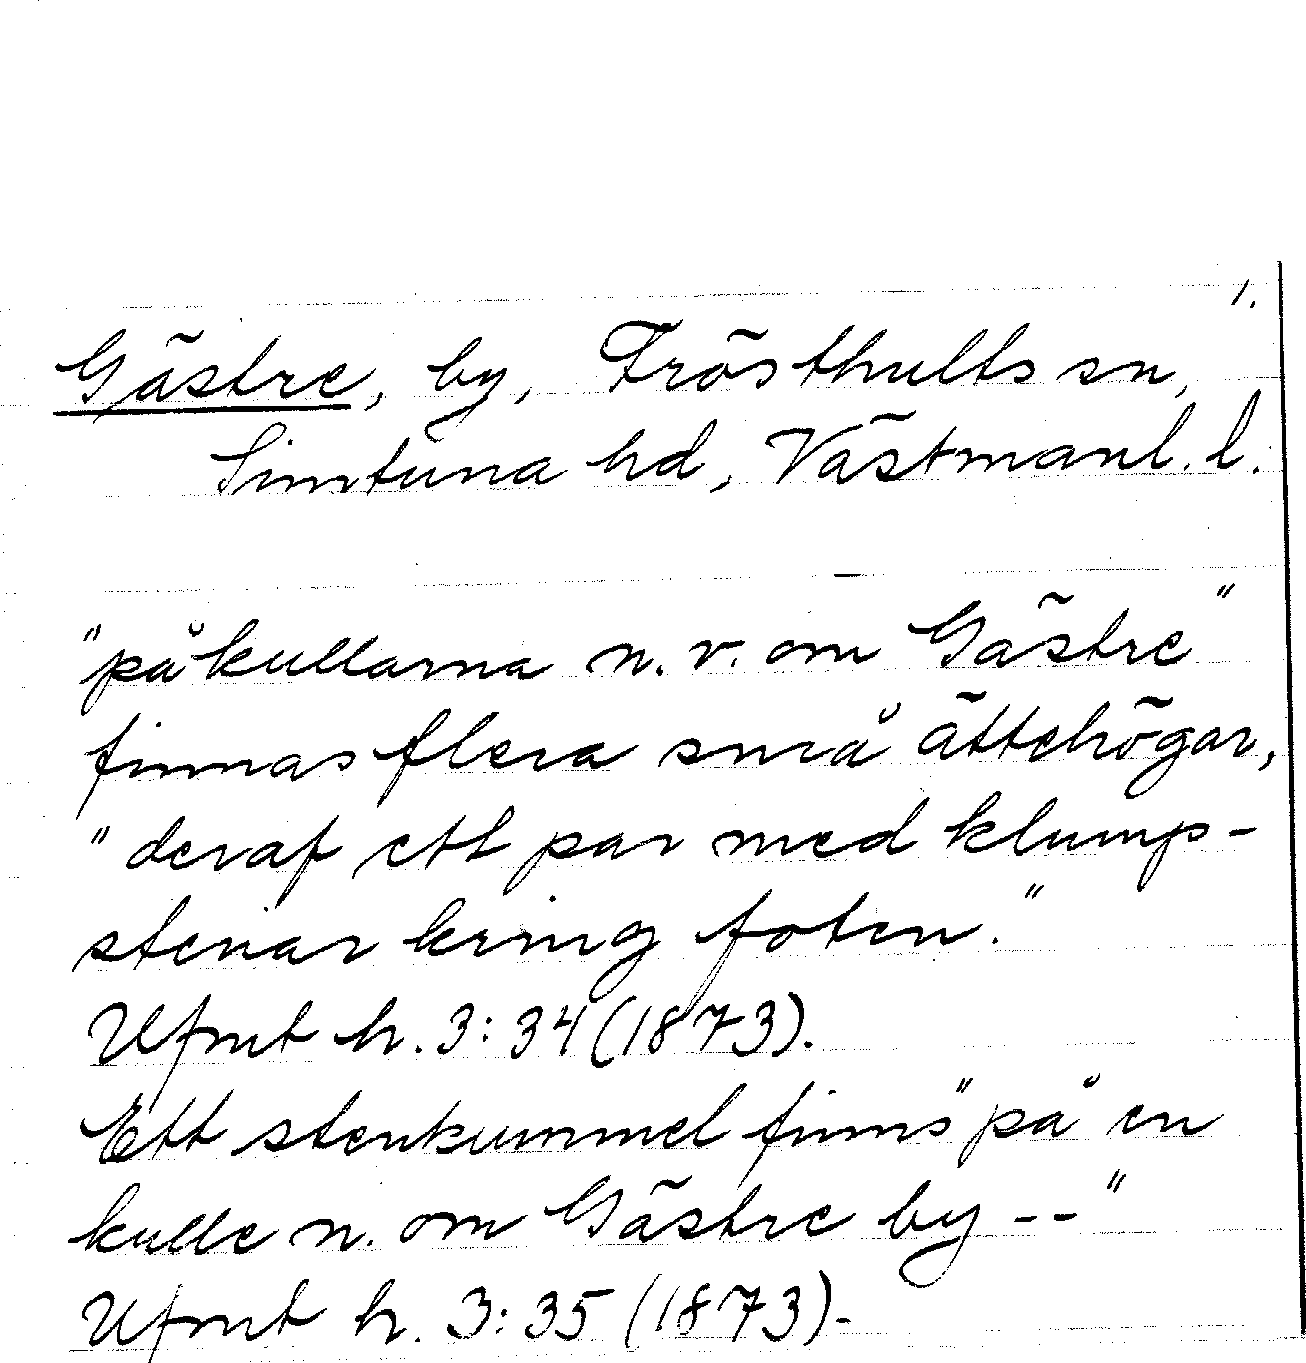 1.
Gästre, by, Frösthults sn,
Simtuna hd, Västmanl. l.
"på kullarna n. v. om Gästre"
finnas flera små ättehögar,
"deraf ett par med klump-
stenar kring foten."
Ufmt h. 3:34 (1873).
Ett stenkummel finns "på en
kulle n. om Gästre by --"
Ufmt h. 3:35 (1873).